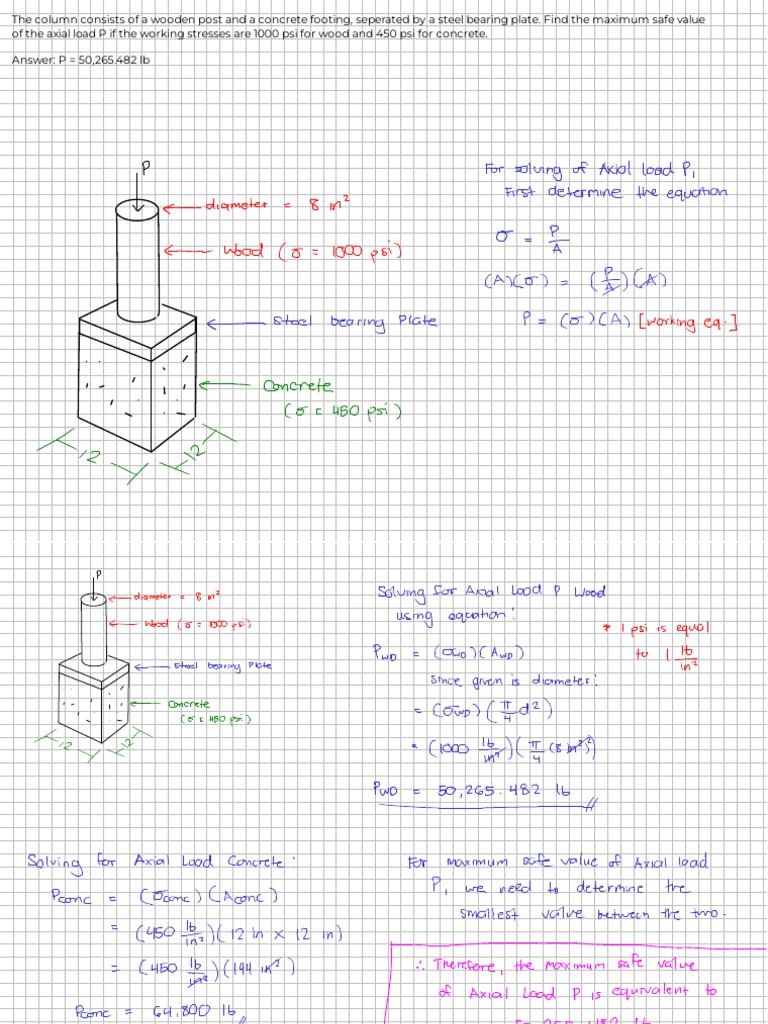 The column consists of a wooden post and a concrete footing, seperated by a steel bearing plate. Find the maximum safe value
of the axial load P if the working stresses are 1000 psi for wood and 450 psi for concrete.
Answer: P = 50,265.482 lb
P
diameter = 8 in²
Wood (σ = 1000 psi)
Steel bearing Plate
Concrete
(σ = 450 psi)
12
12
For solving of Axial load P,
First determine the equation
σ = P/A
(A)(σ) = (P/A)(A)
P = (σ)(A) [working eq.]
P
diameter = 8 in²
Wood (σ = 1000 psi)
Steel bearing Plate
Concrete
(σ = 450 psi)
12
12
Solving for Axial Load P Wood
using equation:
P_WD = (σ_WD)(A_WD)
Since given is diameter:
= (σ_WD)(π/4 d²)
= (1000 lb/in²)(π/4 (8 in²)²)
P_WD = 50,265.482 lb
* 1 psi is equal
to 1 lb/in²
Solving for Axial Load Concrete:
Pconc = (σconc)(Aconc)
= (450 lb/in²)(12 in × 12 in)
= (450 lb/in²)(144 in²)
Pconc = 64,800 lb
For maximum safe value of Axial load
P, we need to determine the
smallest value between the two.
∴ Therefore, the maximum safe value
of Axial Load P is equivalent to